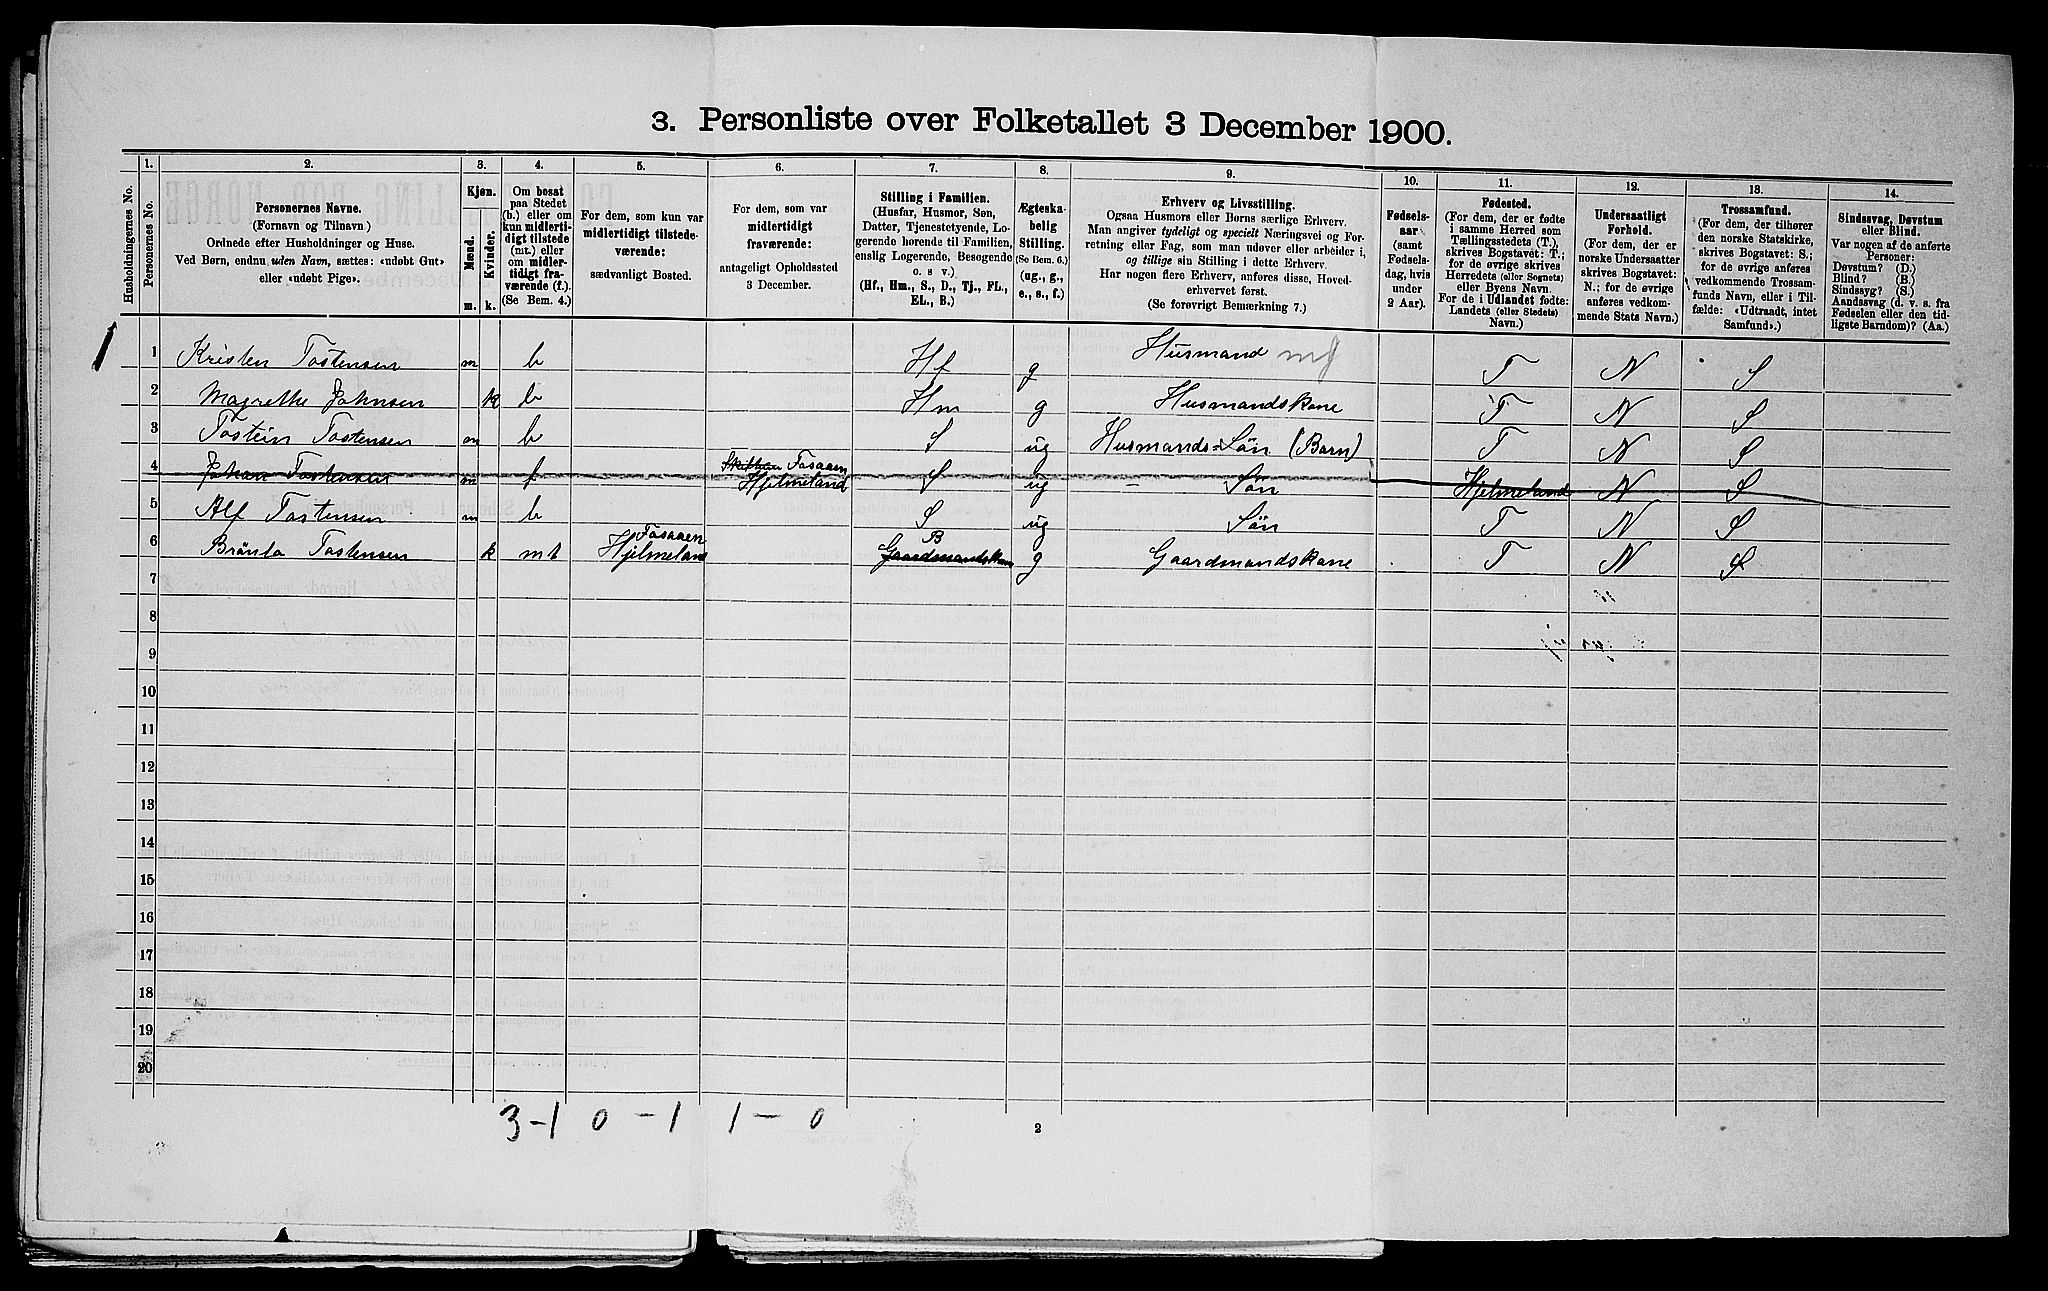 3. Personliste over Folketallet 3 December 1900.
Husholdningernes No.
1.
Personernes No.
2.
Personernes Navne.
(Fornavn og Tilnavn.)
Ordnede efter Husholdninger og Huse.
Ved Børn, endnu uden Navn, sættes: «udøbt Gut»
eller «udøbt Pige».
3.
Kjøn.
Mænd.
Kvinder.
m. k.
4.
Om bosat
paa Stedet
(b.) eller om
kun midlerti-
digt tilstede
(mt.) eller
om midler-
tidigt fra-
værende (f.).
(Se Bem. 4.)
5.
For dem, som kun var
midlertidigt tilstede-
værende:
sædvanligt Bosted.
6.
For dem, som var
midlertidigt
fraværende:
antageligt Opholdssted
3 December.
7.
Stilling i Familien.
(Husfar, Husmor, Søn,
Datter, Tjenestetyende, Lo-
gerende hørende til Familien,
enslig Logerende, Besøgende
o. s v.)
(Hf., Hm., S., D., Tj., FL.,
EL., B.)
8.
Ægteska-
belig
Stilling.
(Se Bem. 6.)
(ug., g.,
e., s., f.)
9.
Erhverv og Livsstilling.
Ogsaa Husmors eller Børns særlige Erhverv.
Man angiver tydeligt og specielt Næringsvei og For-
retning eller Fag, som man udøver eller arbeider i,
og tillige sin Stilling i dette Erhverv.
Har nogen flere Erhverv, anføres disse, Hoved-
erhvervet først.
(Se forøvrigt Bemærkning 7.)
10.
Fødsels-
aar
(samt
Fødsels-
dag, hvis
under
2 Aar).
11.
Fødested.
(For dem, der er fødte
i samme Herred som
Tællingsstedets (T.),
skrives Bogstavet: T.;
for de øvrige skrives
Herredets (eller Sognets)
eller Byens Navn.
For de i Udlandet fødte:
Landets (eller Stedets)
Navn.)
12.
Undersaatligt
Forhold.
(For dem, der er
norske Undersaatter
skrives Bogstavet:
N.; for de øvrige
anføres vedkom-
mende Stats Navn.)
13.
Trossamfund.
(For dem, der tilhører
den norske Statskirke,
skrives Bogstavet: S.;
for de øvrige anføres
vedkommende Trossam-
funds Navn, eller i Til-
fælde: «Udtraadt, intet
Samfund».)
14.
Sindssvag, Døvstum
eller Blind.
Var nogen af de anførte
Personer:
Døvstum? (D.)
Blind? (B.)
Sindssyg? (S.)
Aandssvag (d. v. s. fra
Fødselen eller den tid-
ligste Barndom)? (Aa.)
1 1 Kristen Tostensen m b Hf g Husmand T N S
2 Magrethe Johnsen k b Hm g Husmandskone T N S
3 Tostein Tostensen m b S ug Husmands-Søn (Barn) T N S
4 Johan Tostensen m f Fosaaen Hjelmeland S ug - Søn Hjelmeland N S
5 Alf Tostensen m b S ug Søn T N S
6 Brönla Tostensen k mt Fosaaen Hjelmeland B Gaardmandskone g Gaardmandskone T N S
7
8
9
10
11
12
13
14
15
16
17
18
19
20
3-1 0-1 1-0
2